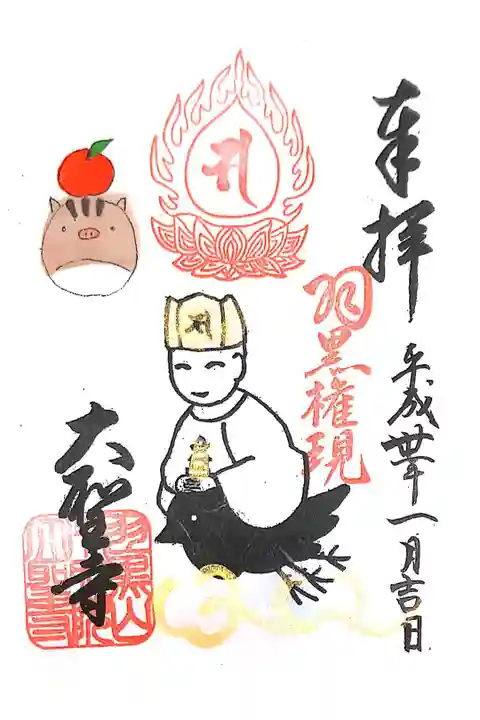 奉拝
平成卅一年一月吉日
羽黒権現
大聖寺